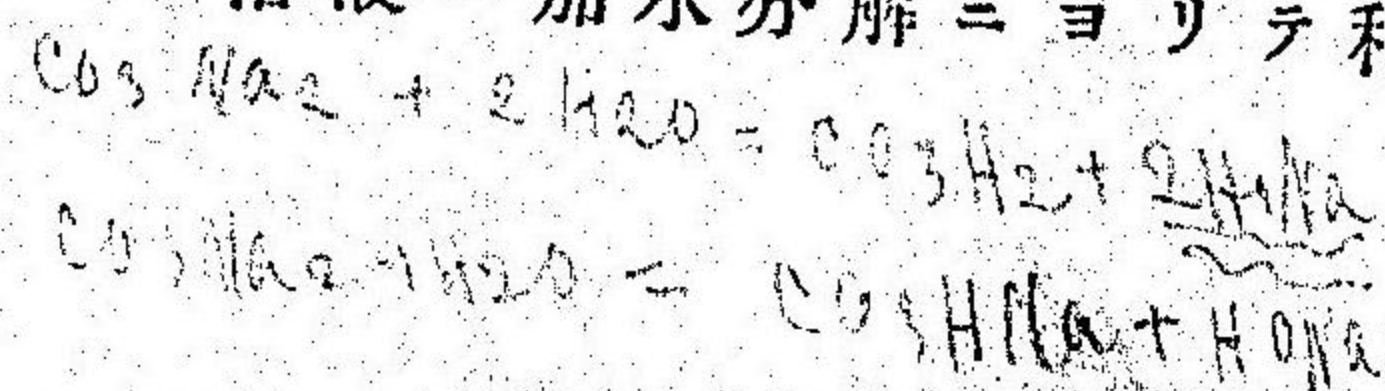 加水分解ニヨリテ
CO3Na2 + 2H2O = CO3H2 + 2HONa
CO3Na2 + H2O = CO3HNa + HONa